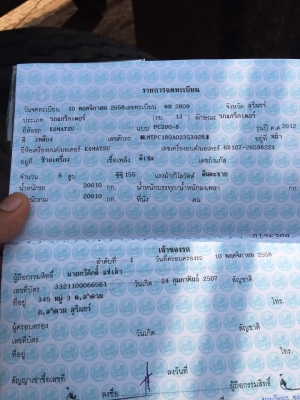 รายการจดทะเบียน
วันจดทะเบียน 10 พฤศจิกายน 2558 เลขทะเบียน ตค 2809 จังหวัด สุรินทร์
ประเภท รถแทร็กเตอร์ (รย. 13 ) ลักษณะ รถแทร็กเตอร์
ยี่ห้อรถ KOMATSU แบบ PC200-8 รุ่นปี ค.ศ. 2012
สี เหลือง เลขตัวรถ อยู่ที่
ยี่ห้อเครื่องยนต์/มอเตอร์ KOMATSU เลขเครื่องยนต์/มอเตอร์
อยู่ที่ ข้างเครื่อง เชื้อเพลิง ดีเซล เลขถังแก๊ส
จำนวน 6 สูบ ซีซี 155 แรงม้า/กิโลวัตต์
น้ำหนักรถ 20010 กก. น้ำหนักบรรทุก/น้ำหนักลงเพลา กก.
น้ำหนักรวม 20010 กก. ที่นั่ง คน
เจ้าของรถ
ลำดับที่ 1 วันที่ครอบครองรถ 10 พฤศจิกายน 2558
ผู้ถือกรรมสิทธิ์
เลขที่บัตร 3321100066561 วันเกิด 24 กุมภาพันธ์ 2507 สัญชาติ
ที่อยู่ 345 หมู่ 3 ต.ลำดวน
อ.ลำดวน สุรินทร์ โทร.
ผู้ครอบครอง
เลขที่บัตร วันเกิด สัญชาติ
ที่อยู่ โทร.
สัญญาเช่าซื้อเลขที่ ลงวันที่
ลงชื่อ ผู้ถือกรรมสิทธิ์